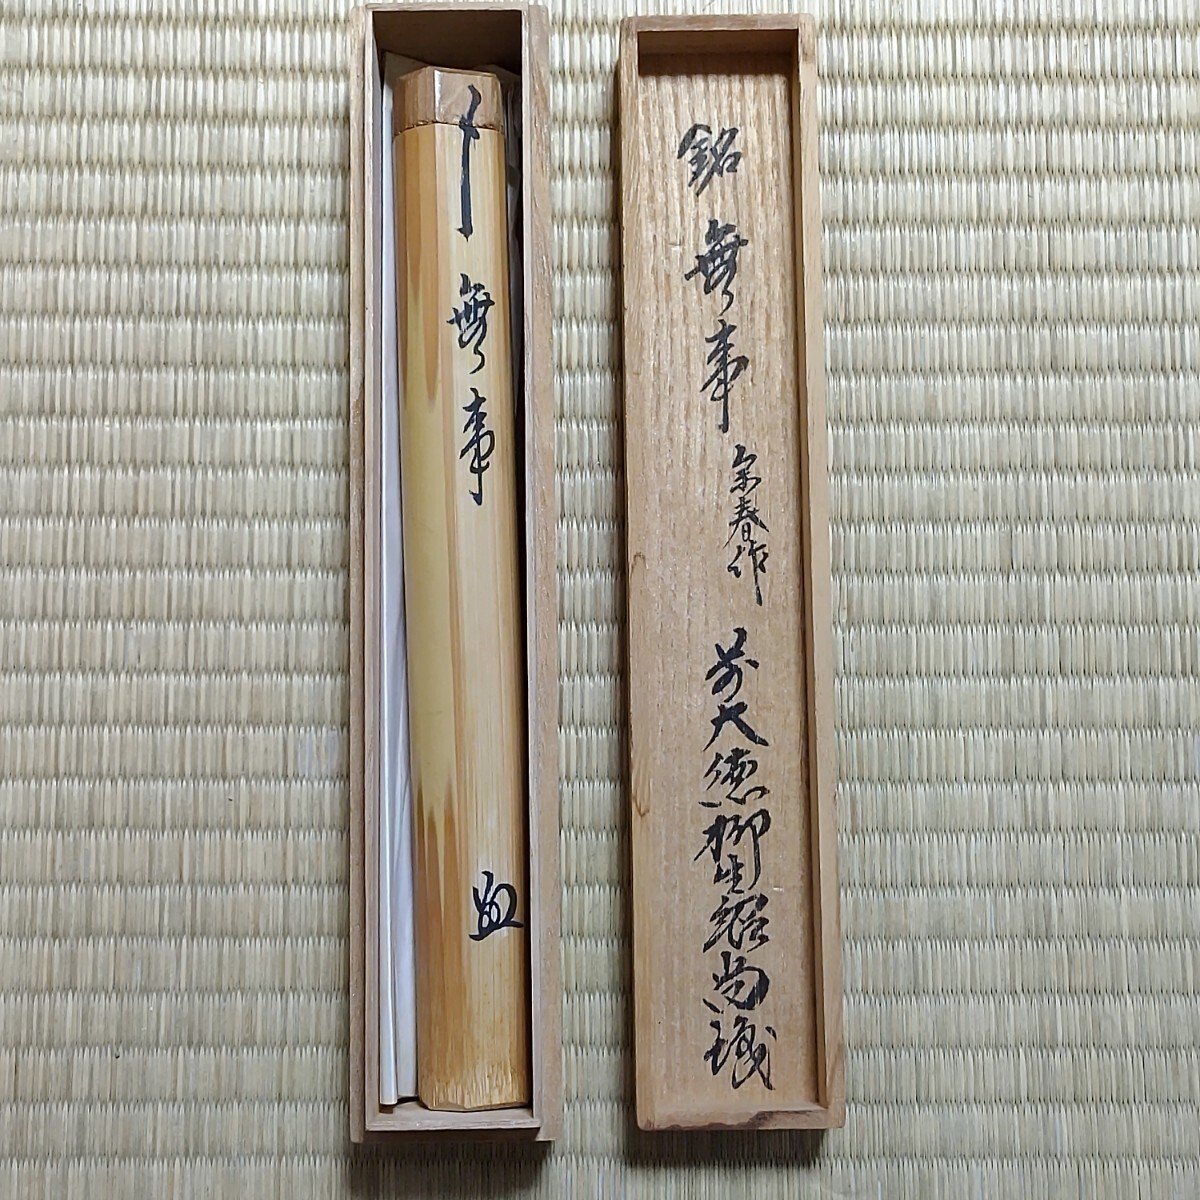 銘 無事 宗春作 前大徳柳生紹尚識
無事